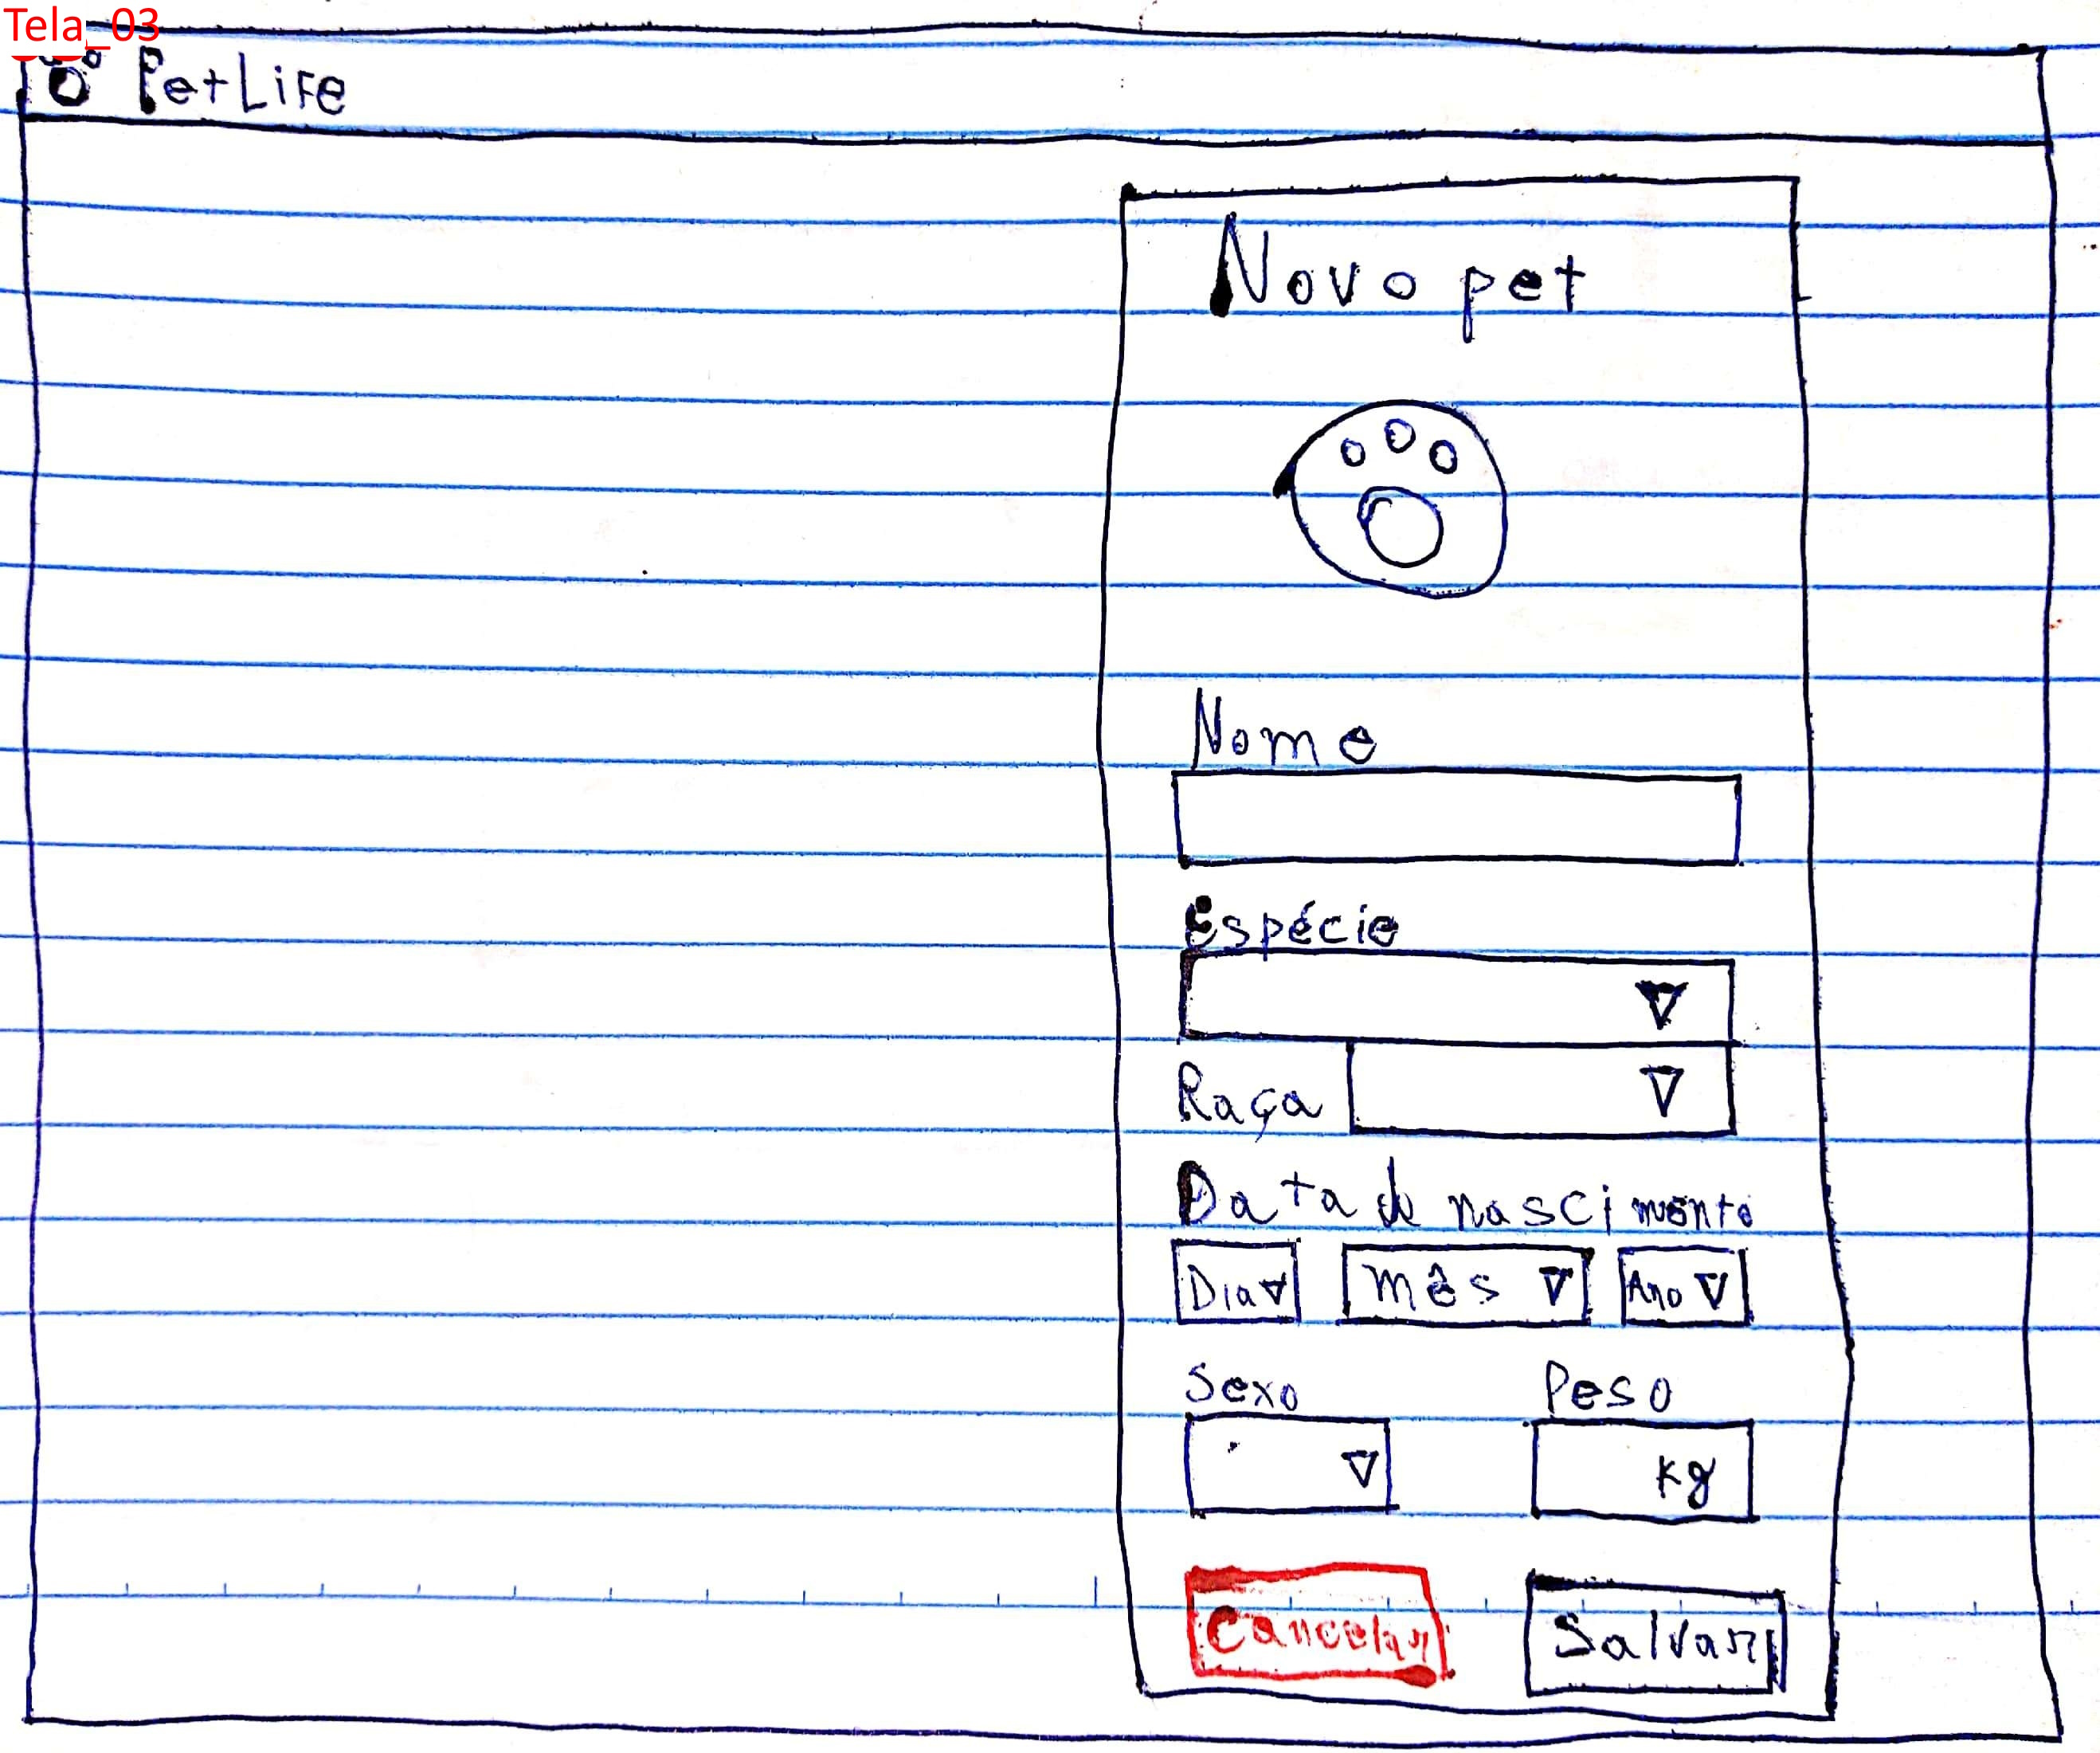 Tela_03
PetLife
Novo pet
Nome
Espécie
Raça
Data de nascimento
Dia Mês Ano
Sexo Peso
kg
Cancelar Salvar